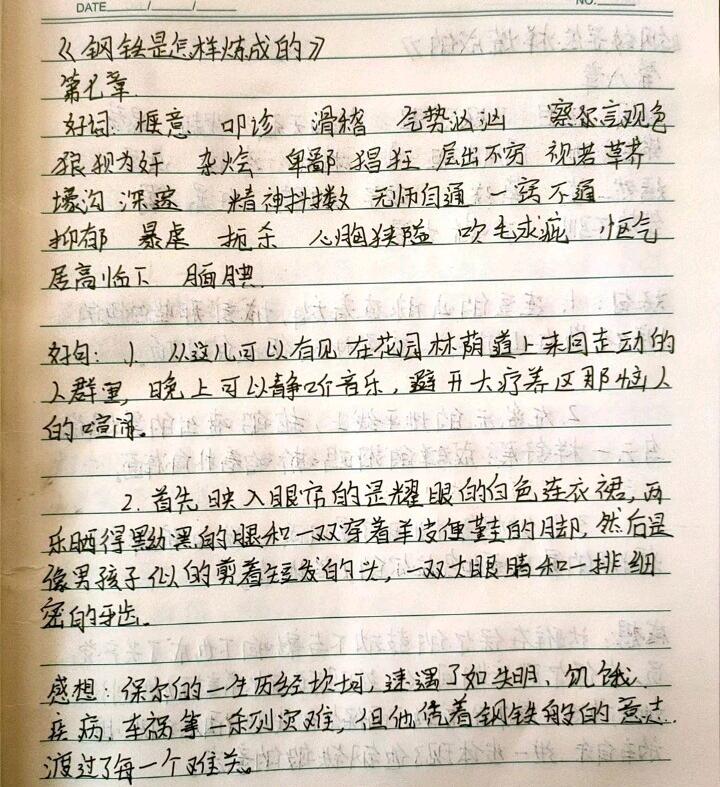 DATE / / NO.
《钢铁是怎样炼成的》
第七章
好词: 惬意 叩诊 滑稽 气势汹汹 察尔言观色
狼狈为奸 杂烩 卑鄙 猖狂 层出不穷 视若草芥
壕沟 深邃 精神抖擞 无师自通 一窍不通
抑郁 暴虐 扼杀 心胸狭隘 吹毛求疵 怄气
居高临下 腼腆
好句: 1. 从这儿可以看见在花园林荫道上来回走动的
人群里, 晚上可以静听音乐, 避开大疗养区那恼人
的喧闹。
2. 首先映入眼帘的是耀眼的白色连衣裙, 两
乐晒得黝黑的腿和一双穿着羊皮便鞋的脚, 然后是
像男孩子似的剪着短发的头, 一双大眼睛和一排细
密的牙齿。
感想: 保尔的一生历经坎坷, 遭遇了如失明、饥饿、
疾病、车祸等一系列灾难, 但他凭着钢铁般的意志
渡过了每一个难关。